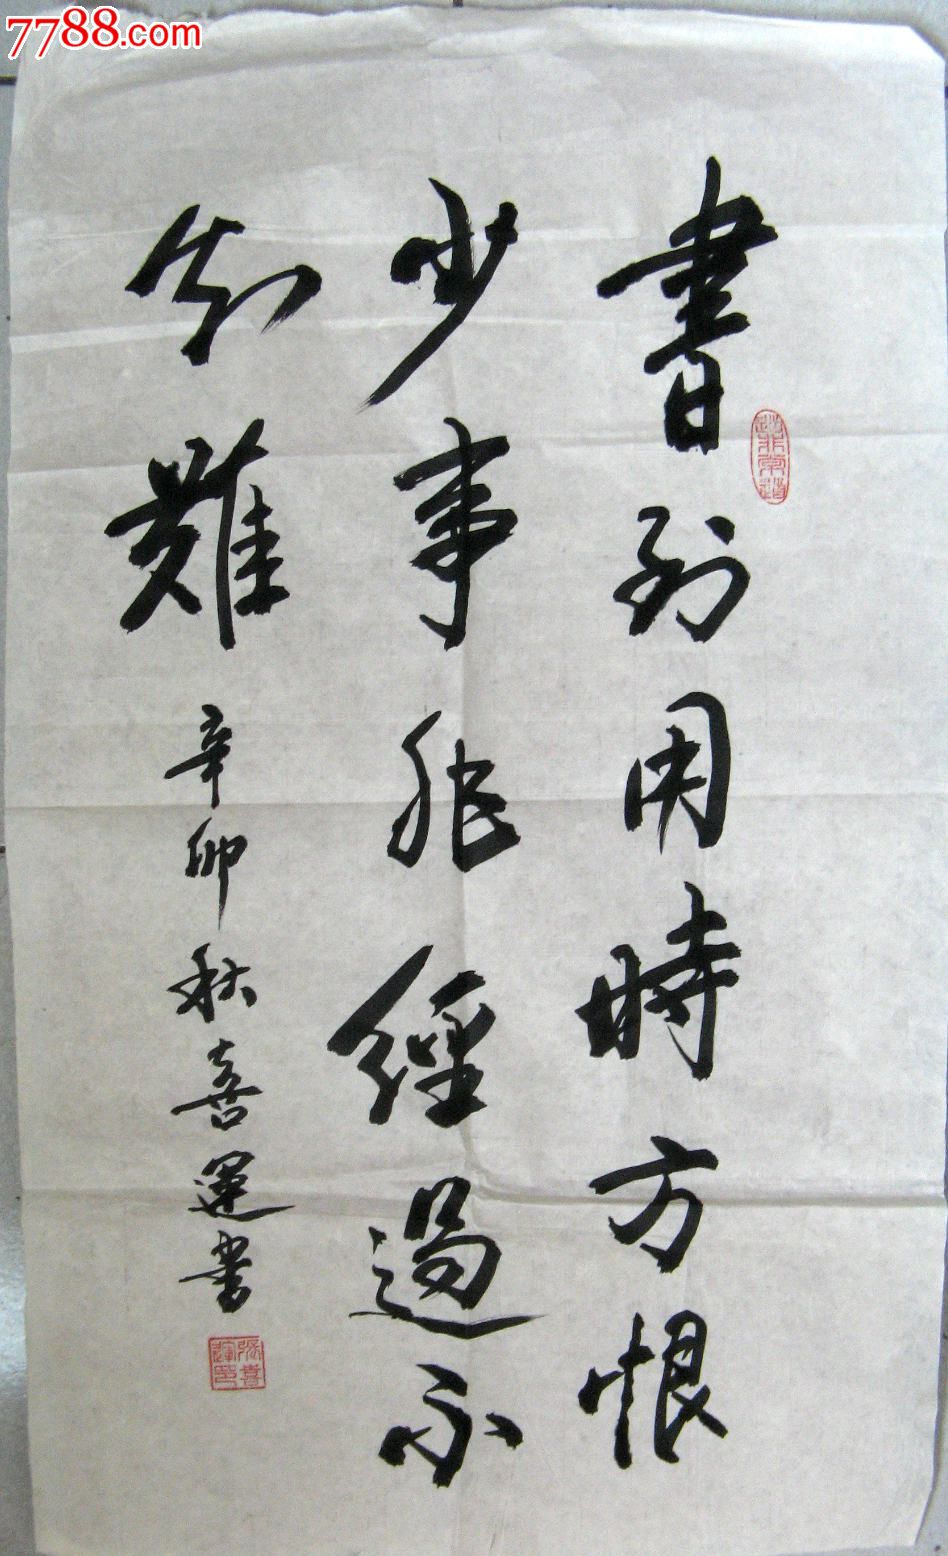 7788.com
書到用時方恨
少事非經過不
知難
辛卯秋喜運書
張喜運印